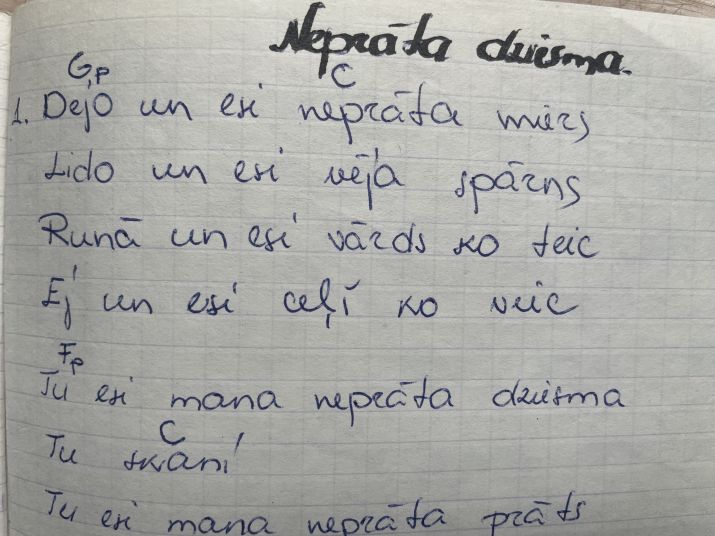 Neprāta dziesma.
Gp C
1. Dejo un esi neprāta mirs
Lido un esi vēja spārns
Runā un esi vārds ko teic
Ej un esi ceļi ko veic
Fp
Tu esi mana neprāta dziesma
C
Tu skani
Tu esi mana neprāta prāts